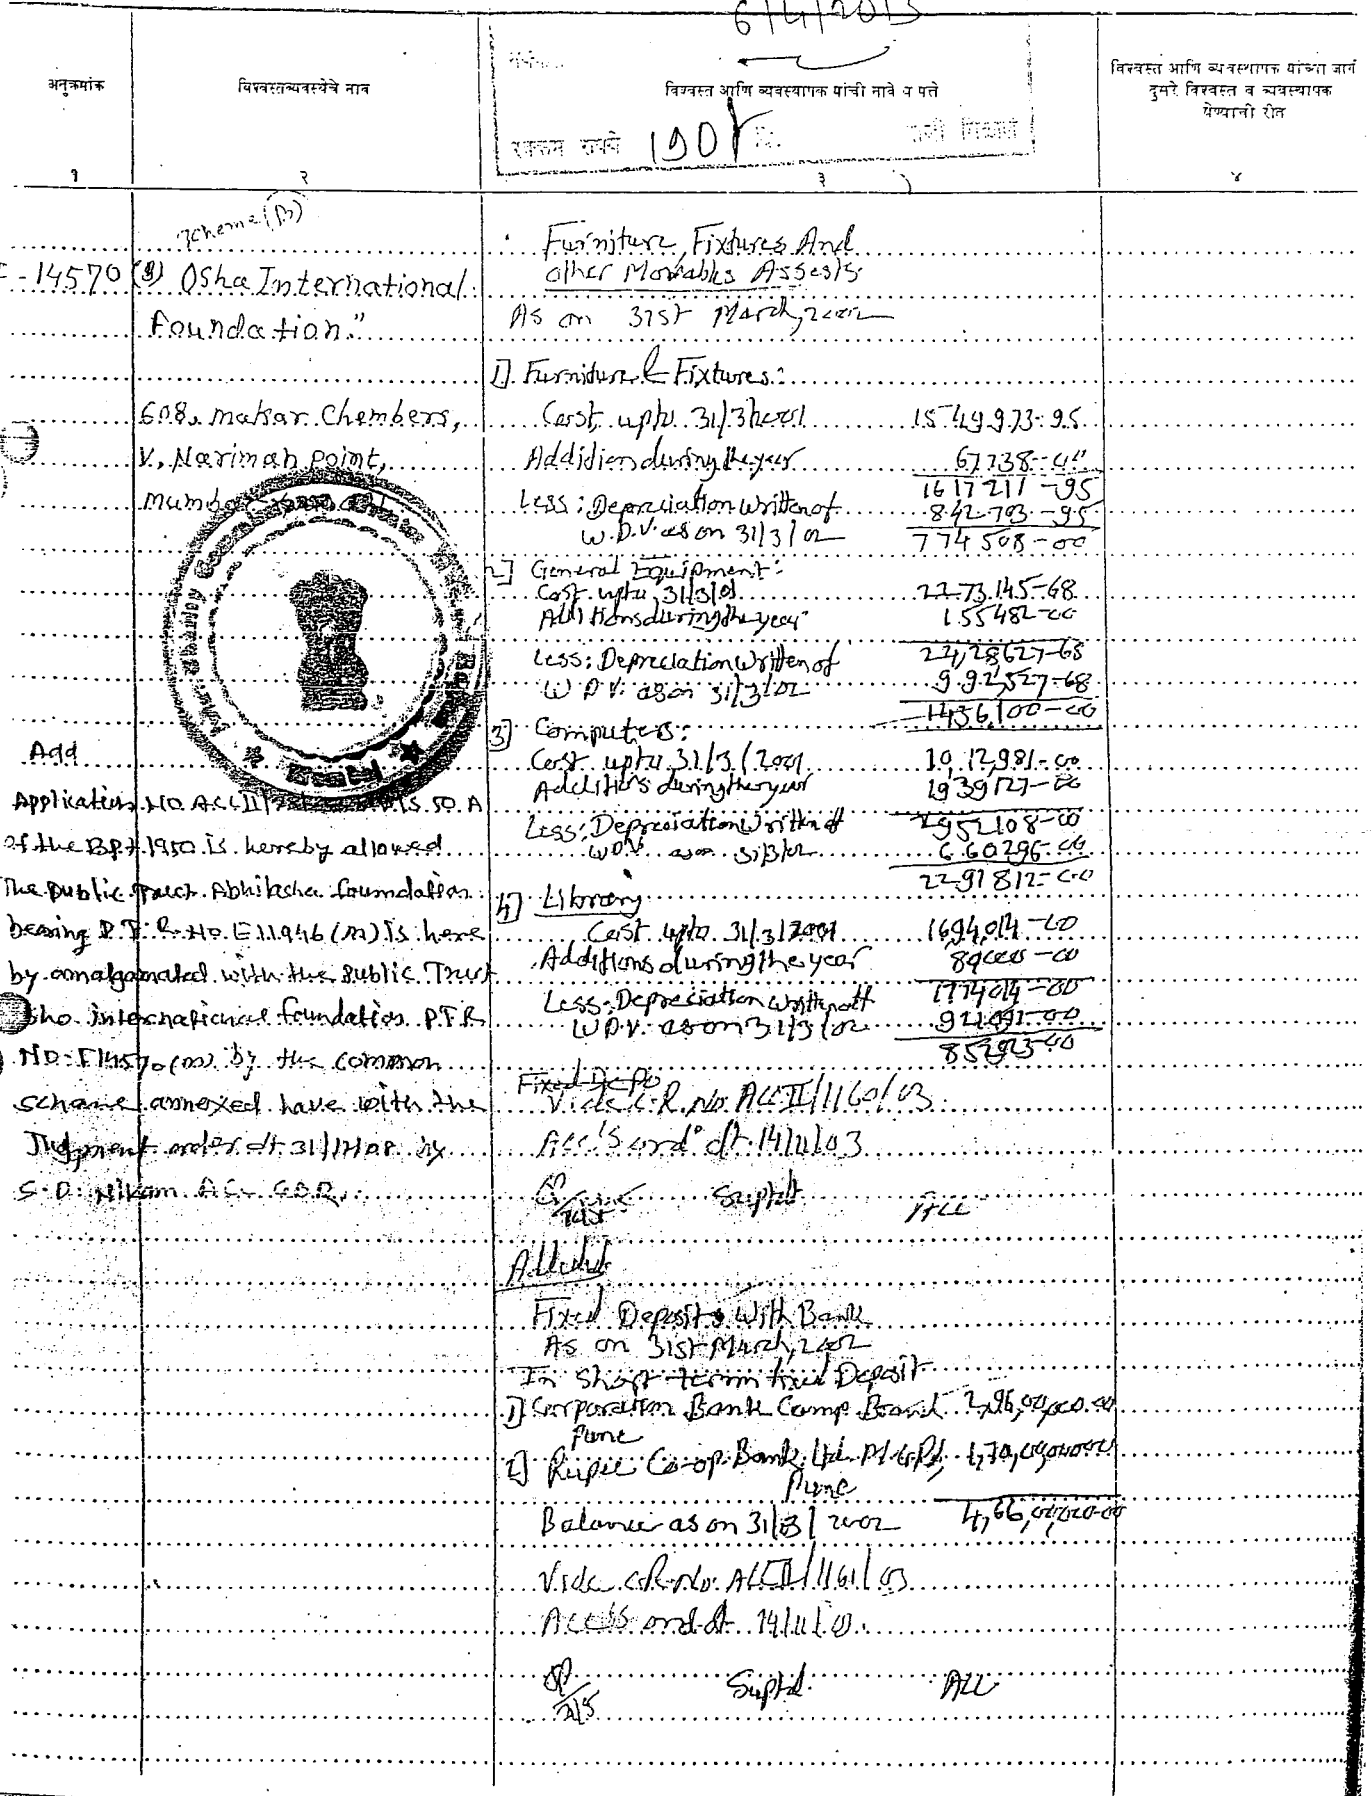 6/4/2013
अनुक्रमांक
विश्वस्तव्यवस्थेचे नाव
विश्वस्त आणि व्यवस्थापक यांची नावे व पत्ते
विश्वस्त आणि व्यवस्थापक यांच्या जागी
दुसरे विश्वस्त व व्यवस्थापक
येण्याची रीत
रक्कम रुपये 190
१
२
३
४
Scheme (B)
-14570 Osha International
Foundation."
608, makar Chembers,
V, Nariman point,
mumbai
Add
Application NO ACC II/ 50 A
of the BPT 1950 is hereby allowed
The public Trust Abhilasha foundation
bearing P.T.R. No E11946 (M) is here
by amalgamated with the public Trust
Osho international foundation P.T.R
NO. E14570 (M) by the common
scheme annexed have with the
Judgment order dt 31/12/08 by
S.D. Nikam ACC GBR.
Furniture, Fixtures And
other Moveables Assests
As on 31st March, 2002
1] Furniture & Fixtures:
Cost upto 31/3/2001 1549973-95
Addidion during the year 67238-00
1617211-95
Less: Depreciation written of 842703-95
W.D.V. as on 31/3/02 774508-00
2] General Equipment:
Cost upto 31/3/01 2273145-68
Additions during the year 155482-00
24,28627-68
Less: Depreciation written of 992,527-68
W D V. as on 31/3/02 1436,100-00
3] Computers:
Cost upto 31/3/2001 10,12,981-00
Additions during the year 1939127-00
2952108-00
Less: Depreciation written of 660296-00
WDV as on 31/3/02 2291812-00
4] Library
Cost upto 31/3/2001 1694,014-00
Additions during the year 80000-00
1774014-00
Less: Depreciation written off 921091-00
W.D.V. as on 31/3/02 852923-00
Fixed Depo
Vide C.R. No. ACC II/1160/03
Acc's ord dt. 14/11/03
Suptd. ACC
Fixed Deposits With Bank
As on 31st March, 2002
In Short term fixed Deposit
1] Corporation Bank Camp Branch 2,96,00,000.00
Pune
2] Rupee Co-op. Bank Ltd. 1,70,00,000.00
Pune
Balance as on 31/3/2002 4,66,00,000-00
Vide C.R. No. ACC II/1161/03
Acc's ord dt 14/11/03.
Suptd. ACC